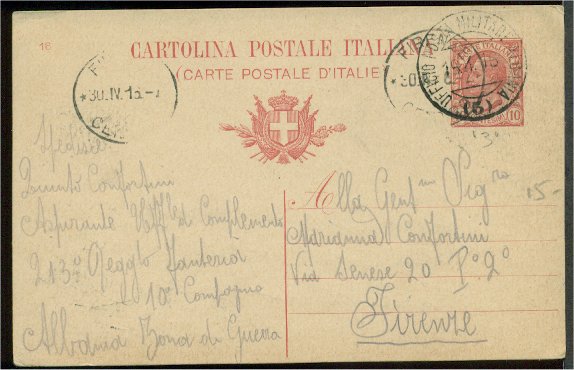 16
CARTOLINA POSTALE ITALIANA
(CARTE POSTALE D'ITALIE)
30.IV.16-7
UFFICIO POSTA MILITARE
(3)
10
Spedisce
Quinto Confortini
Aspirante Uff.le di Complemento
213° Regg.to Fanteria
10a Compagnia
Albania Zona di Guerra
Alla Gent.ma Sig.ra
Marianna Confortini
Via Senese 20 P° 2°
Firenze
15-